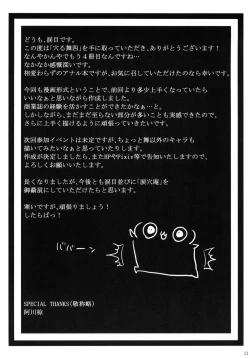 どうも、涙目です。
この度は「穴る舞四」を手に取っていただき、ありがとうございます！
なんやかんやでもう４冊目なんですね…
なかなか感慨深いです。
相変わらずのアナル本ですが、お気に召していただけたのなら幸いです。
今回も漫画形式ということで、前回より多少上手くなっていたら
いいなぁと思いながら作成しました。
商業誌の経験を活かすことができたかな…と。
しかしながら、まだまだ至らない部分が多いことも実感できたので、
さらに上手く描けるように頑張っていきたいです。
次回参加イベントは未定ですが、ちょっと舞以外のキャラも
描いてみたいなぁと思っていたりします。
作成が決定しましたら、またHPやPixiv等で告知いたしますので、
よろしくお願いします。
長くなりましたが、今後とも涙目並びに「涙穴庵」を
御贔屓にしていただけたらと思います。
寒いですが、頑張りましょう！
したらばっ！
ババーン
SPECIAL THANKS(敬称略)
阿川椋